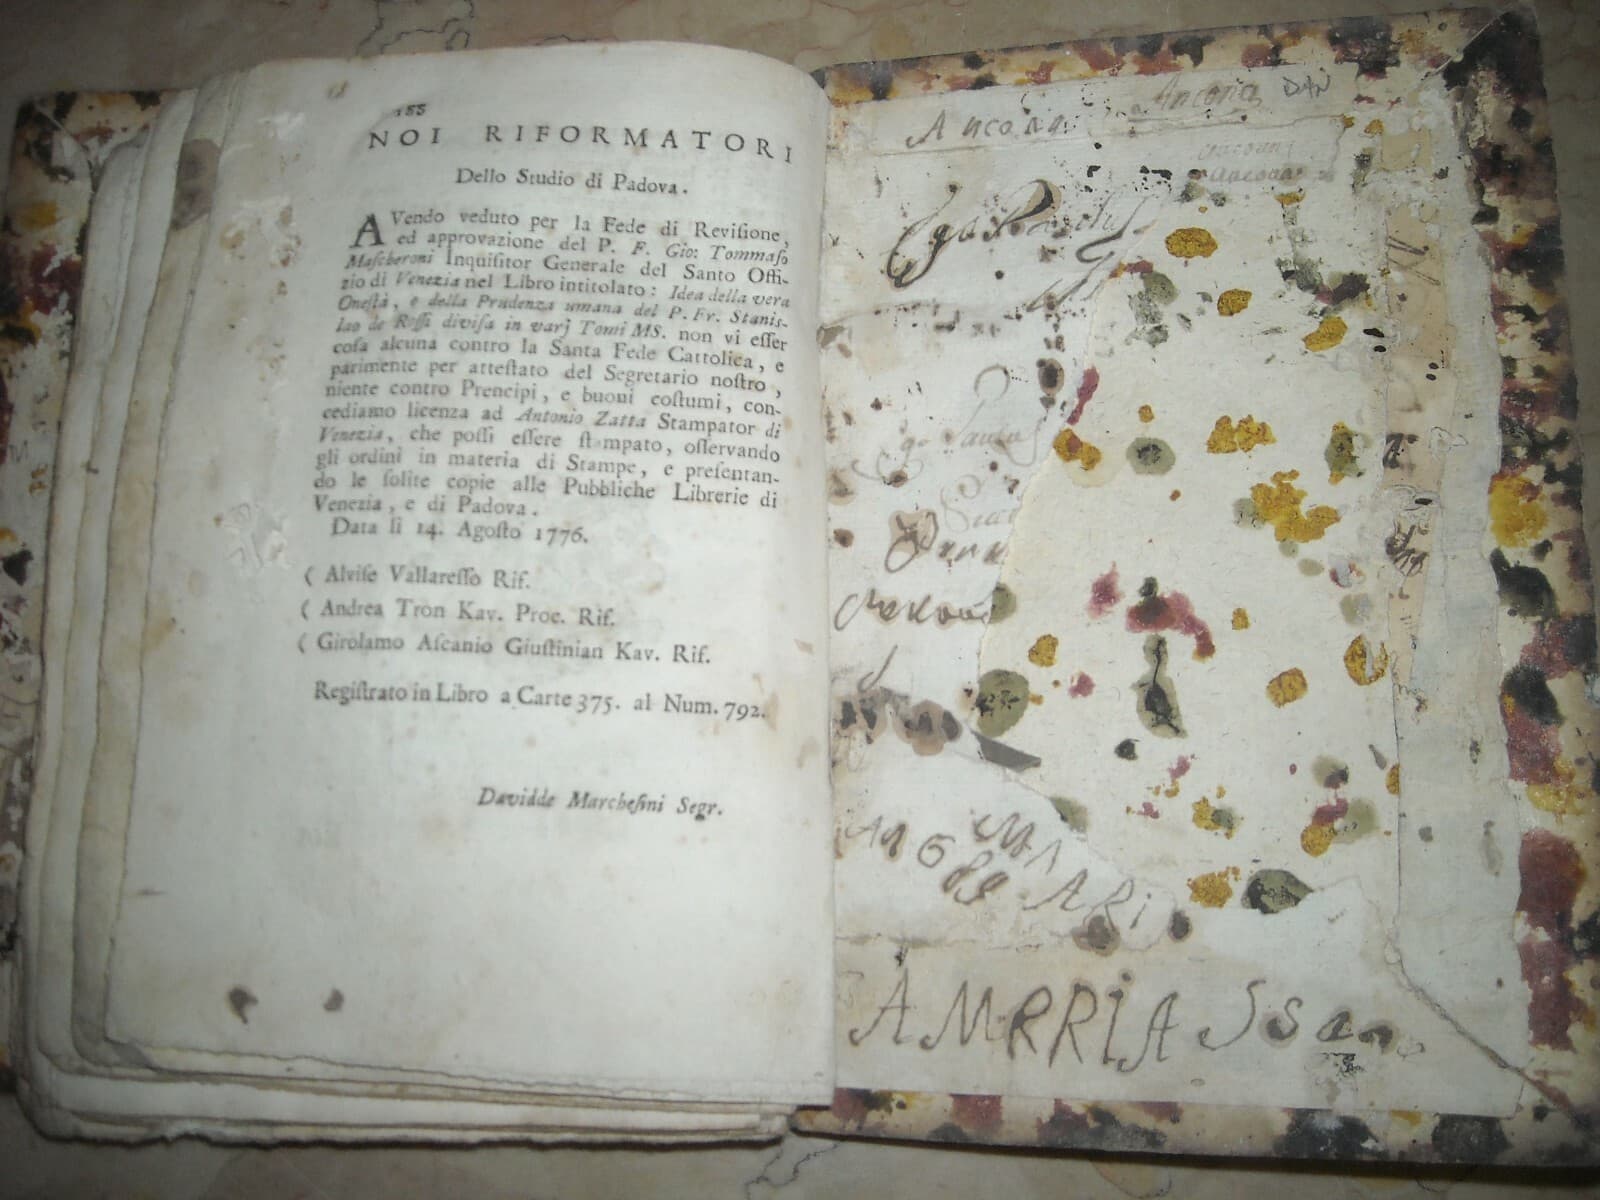 155
NOI RIFORMATORI
Dello Studio di Padova.
AVendo veduto per la Fede di Reviſione,
ed approvazione del P. F. Gio: Tommaſo
Maſcheroni Inquiſitor Generale del Santo Offi-
zio di Venezia nel Libro intitolato: Idea della vera
Oneſtà, e della Prudenza umana del P. Fr. Stanis-
lao de Roſſi diviſa in varj Tomi MS. non vi eſſer
coſa alcuna contro la Santa Fede Cattolica, e
parimente per atteſtato del Segretario noſtro,
niente contro Prencipi, e buoni coſtumi, con-
cediamo licenza ad Antonio Zatta Stampator di
Venezia, che poſſi eſſere ſtampato, oſſervando
gli ordini in materia di Stampe, e preſentan-
do le ſolite copie alle Pubbliche Librerie di
Venezia, e di Padova.
Data li 14. Agoſto 1776.
( Alviſe Vallareſſo Rif.
( Andrea Tron Kav. Proc. Rif.
( Girolamo Aſcanio Giuſtinian Kav. Rif.
Regiſtrato in Libro a Carte 375. al Num. 792.
Davidde Marcheſini Segr.
Ancona Ancona DAN
ancona
Ego
Ego Paulus
MARi
AMRRiA Ssan